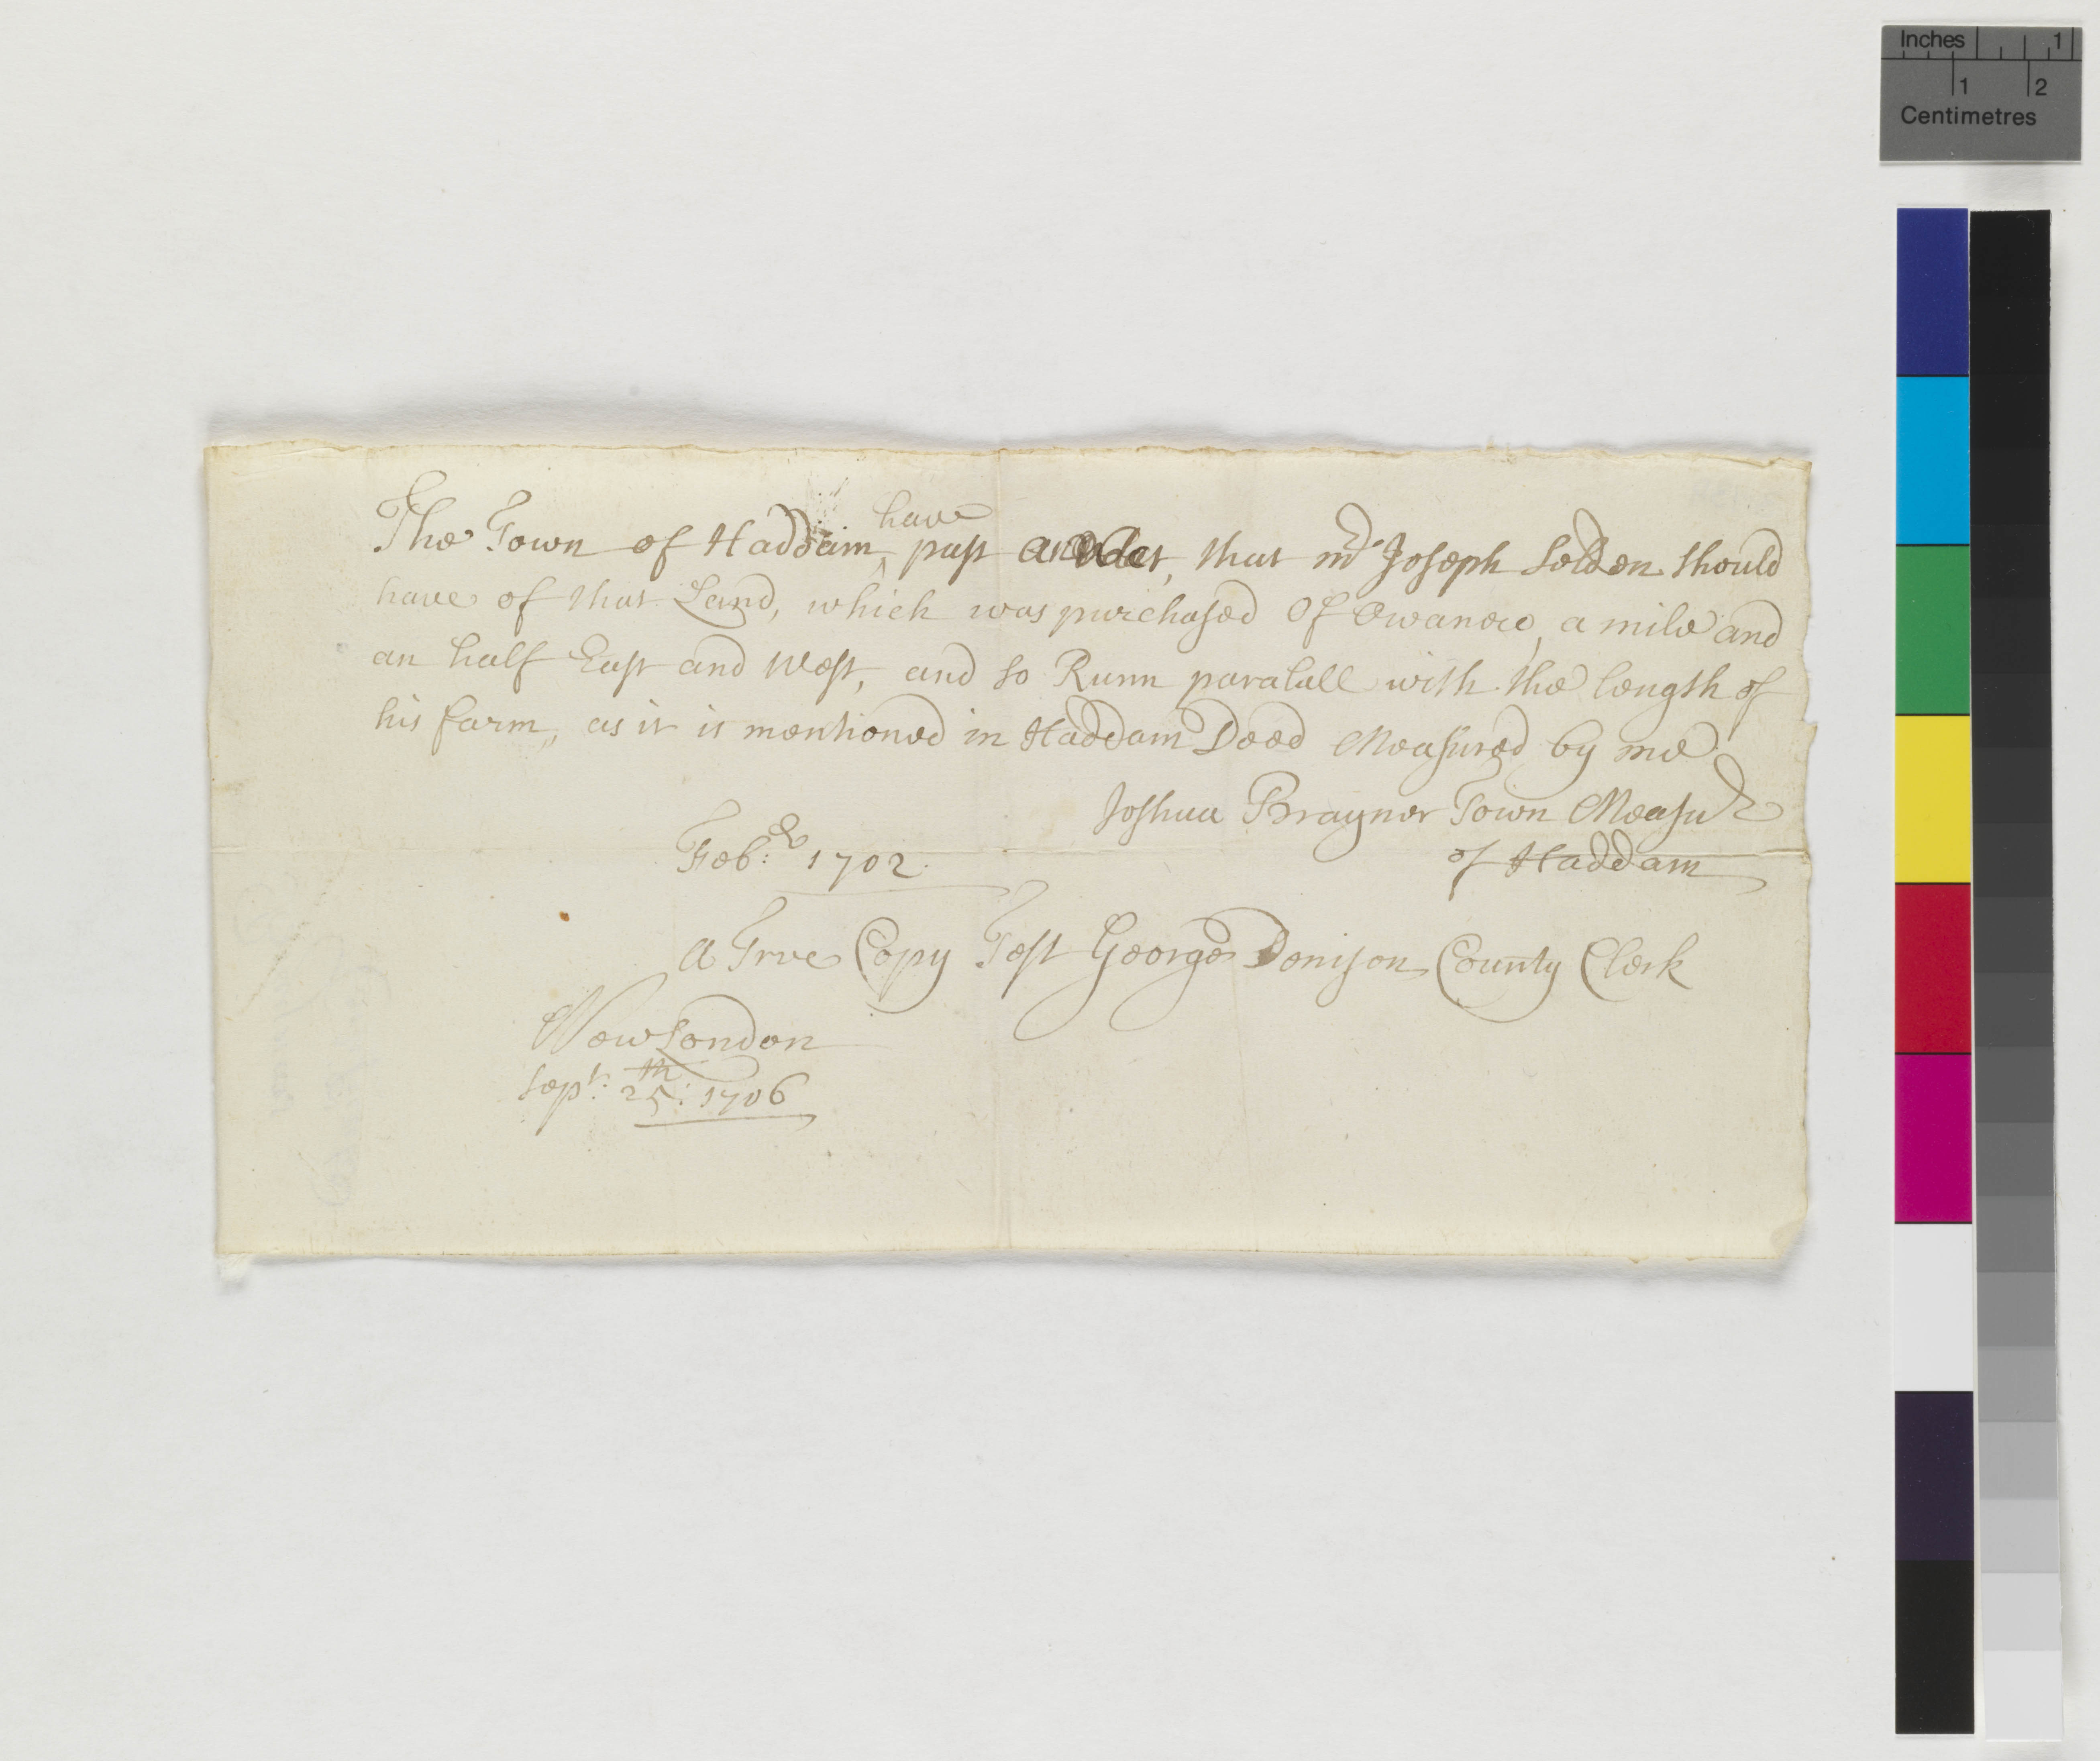 Inches 1
1 2
Centimetres
have
The Town of Haddam, past an order, that mr Joseph Selden should
have of that Land, which was purchased of Owaneco, a mile and
an half East and West, and so Runn paralall with the length of
his farm, as it is mentioned in Haddam Deed Measured by me
Joshua Brayner Town Measur
Feb:r 1702. of Haddam
A True Copy Test George Denison County Clerk
New London
Sept: 25th: 1706